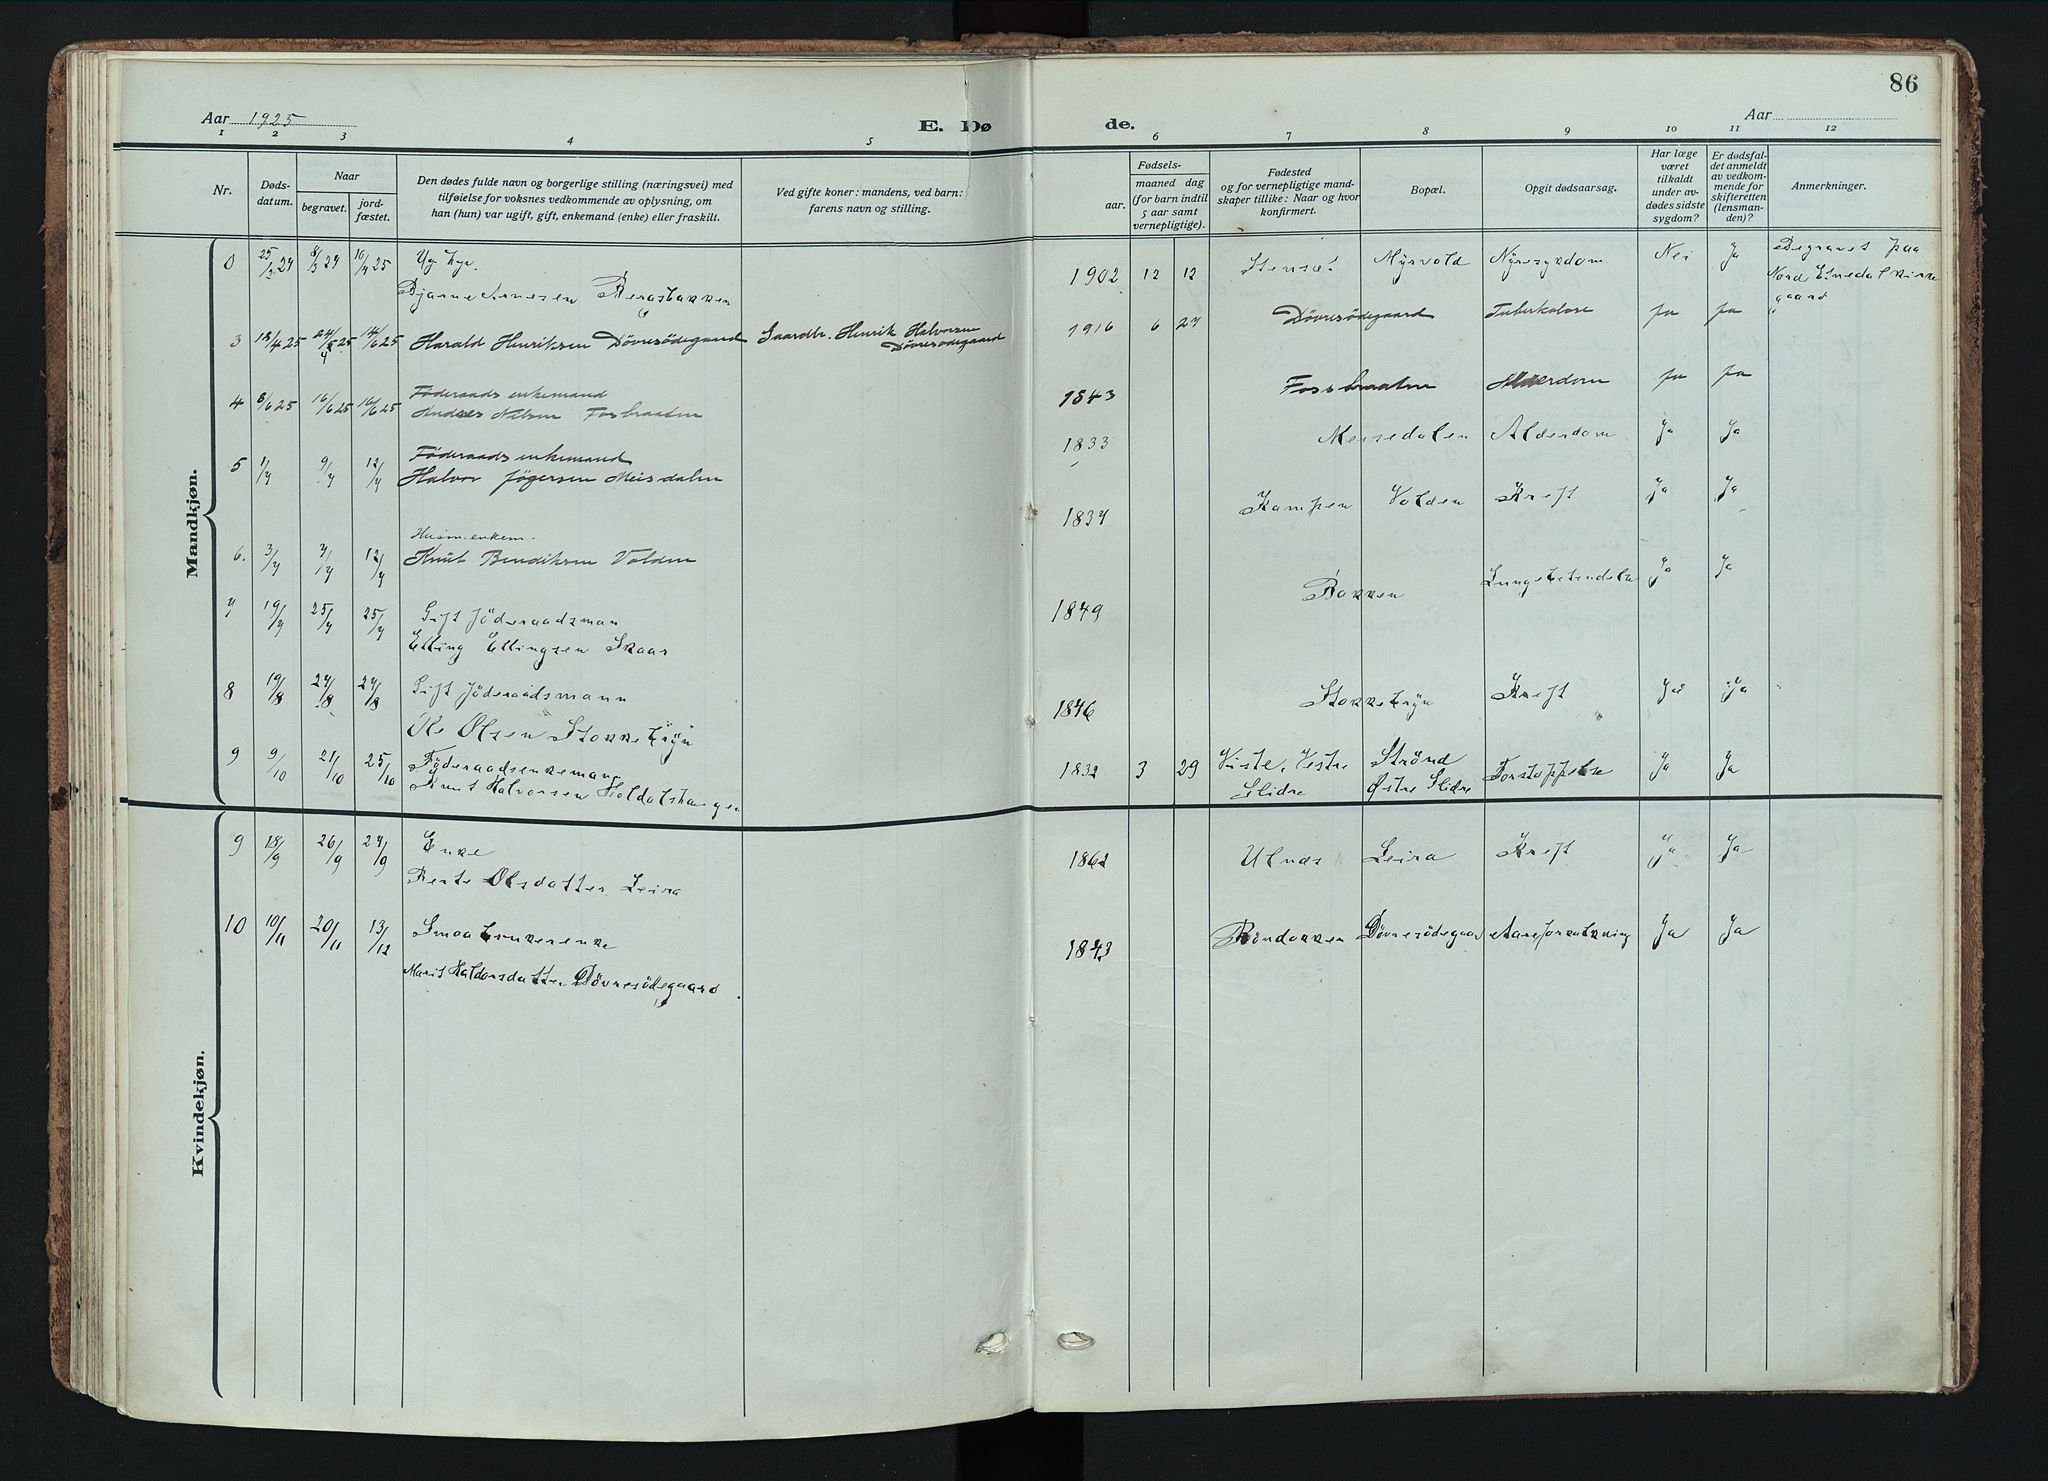 86
Aar 1925
E. Dø
de.
Aar
1 2 3 4 5 6 7 8 9 10 11 12
Nr.
Døds-
datum.
Naar
begravet.
jord-
fæstet.
Den dødes fulde navn og borgerlige stilling (næringsvei) med
tilføielse for voksnes vedkommende av oplysning, om
han (hun) var ugift, gift, enkemand (enke) eller fraskilt.
Ved gifte koner: mandens, ved barn:
farens navn og stilling.
Fødsels-
aar.
maaned dag
(for barn indtil
5 aar samt
vernepligtige).
Fødested
og for vernepligtige mand-
skaper tillike: Naar og hvor
konfirmert.
Bopæl.
Opgit dødsaarsag.
Har læge
været
tilkaldt
under av-
dødes sidste
sygdom?
Er dødsfal-
det anmeldt
av vedkom-
mende for
skifteretten
(lensman-
den)?
Anmerkninger.
Mandkjøn.
0 25/3 24 8/3 24 10/4 25 Ug.
Bjarne Arnesen Bergsbakken
1902 12 12 Stensæt Myrvold Nyresygdom Nei Ja Begravet paa
Nord Etnedal kirke
gaard
3 18/4 25 24/4 25 14/6 25 Harald Henriksen Døvresødegaard Gaardbr. Henrik Halvorsen
Døvresødegaard
1916 6 27 Døvresødegaard Tuberkulose ja ja "
4 8/6 25 16/6 25 16/6 25 Föderaads enkemand
Andres Nilsen Fossbraaten
1843 Fossbraaten Alderdom ja ja
5 1/7 9/7 12/7 Föderaads enkemand
Halvor Jøgersen Meisdalen
1833 Meisedalen Alderdom Ja Ja
6. 3/7 7/7 12/7 Husm. enkem.
Knut Bendiksen Volden
1837 Kampen Volden Kreft Ja Ja
7 19/7 25/7 25/7 Gift Föderaadsman
Elling Ellingsen Skaar
1849 Bakken Ja Ja
8 19/8 24/8 24/8 Gift Föderaadsmann
Ole Olsen Stokkebryn
1846 Stokkebryn Kreft Ja Ja
9 9/10 21/10 25/10 Föderaadsenkeman
Knut Halvorsen Holdalshaugen
1832 3 29 Viste, Vestre
Slidre
Strønd
Østre Slidre
Forstoppelse Ja Ja
Kvindekjøn.
9 18/9 26/9 27/9 Enke
Berte Olsdatter Leira
1862 Ulnæs Leira Kreft Ja Ja
10 10/11 20/11 13/12 Smaabrukerenke
Marit Haldorsdatter Døvresødegaard.
1843 Röndokken Døvresødegaard Aareforkalkning Ja Ja